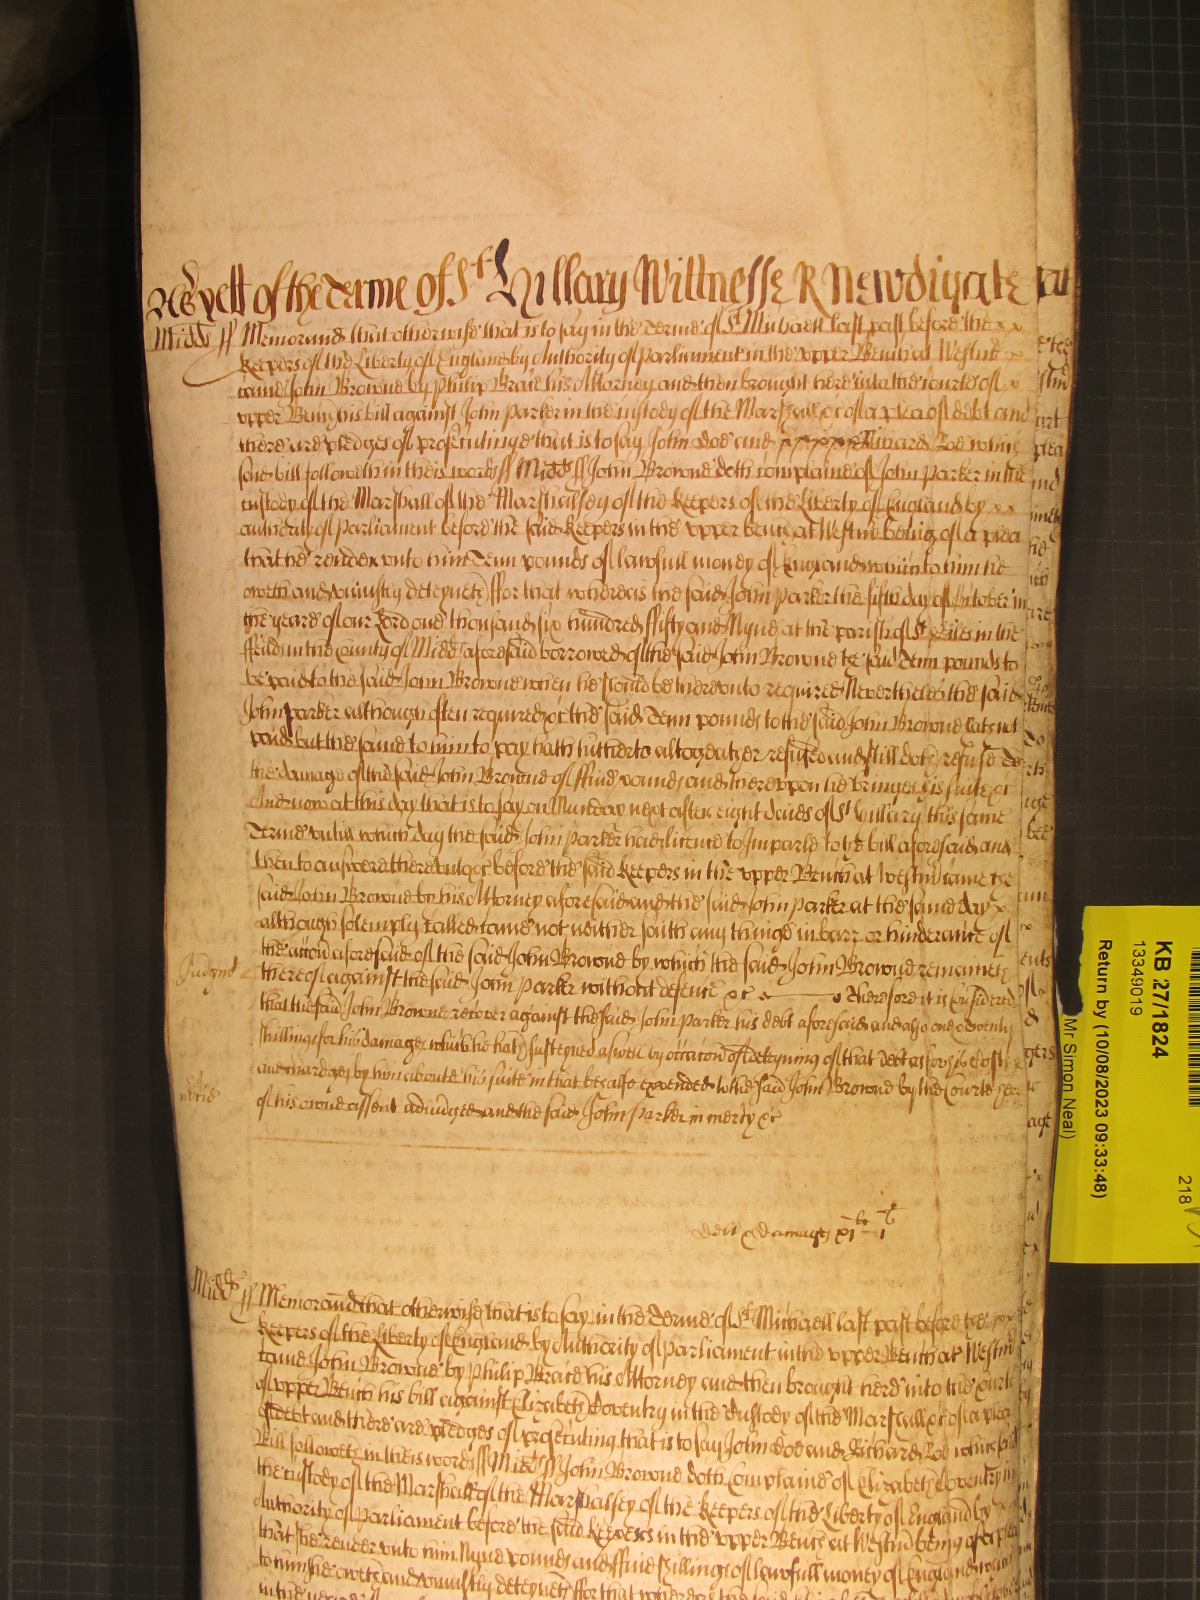 As yett of the Terme of St Hillary Wittnesse R Newdigate
Midds ss Memorand that otherwise that is to say in the Terme of St Michaell last past before the
Keepers of the Liberty of England by Authority of Parliament in the upper Bench at Westm
came John Browne by Philip Brace his Attorney and then brought here into the Courte of
upper Bench his bill against John Parker in the custody of the Marshall &c of a plea of debt and
there are pledges of prosecutinge that is to say John Doe and Richard Roe which
said bill followeth in theis words ss Midds ss John Browne doth complaine of John Parker in the
custody of the Marshall of the Marshalsey of the Keepers of the Liberty of England by
authority of Parliament before the said Keepers in the upper bench at Westm being of a plea
that he render unto him Tenn pounds of lawfull money of England which to him he
oweth and uniustly deteyneth ffor that whereas the said John Parker the fifth day of October in
the yeare of our Lord one thousand six hundred ffifty and Nyne at the parish of St Giles in the
ffeilds in the County of Midds aforesaid borrowed of the said John Browne the said Tenn pounds to
be paid to the said John Browne when he should be thereunto required Neverthelesse the said
John Parker although often required &c the said Tenn pounds to the said John Browne hath not
paid but the same to him to pay hath hitherto altogeather refused and still doth refuse To
the damage of the said John Browne of ffive pounds and thereupon he bringes his suite &c
And now at this day that is to say on Munday next after eight daies of St Hillary this same
Terme untill which day the said John Parker had licence to Imparle to the bill aforesaid and
then to answere thereunto &c before the said Keepers in the upper Bench at Westm came the
said John Browne by his Attorney aforesaid and the said John Parker at the same day
although solemply called came not neither saith any thinge in barr or hinderance of
the accon aforesaid of the said John Browne by which the said John Browne remaineth
Judgmt
thereof against the said John Parker without defence &c Therefore it is Considered
that the said John Browne recover against the said John Parker his debt aforesaid and also one &twenty
shillings for his damages which he hath susteyned aswell by occation of deteyning of that debt as for his Costs
and chardges by him aboute his suite in that behalfe expended to the said John Browne by the Courte here
of his owne assent adiudged and the said John Parker in mercy &c
debt & damages xi li i s
Midds ss Memorand that otherwise that is to say in the Terme of St Michaell last past before the
Keepers of the Liberty of England by Authority of Parliament in the upper Bench at Westm
came John Browne by Philip Brace his Attorney and then brought here into the Courte
of upper Bench his bill against Elizabeth Coventry in the Custody of the Marshall &c of a plea
of debt and there are pledges of prosecuting that is to say John Doe and Richard Roe which said
Bill followeth in theis words ss Midds ss John Browne doth Complaine of Elizabeth Coventry in
the custody of the Marshall of the Marshalsey of the Keepers of the Liberty of England by
Authority of Parliament before the said Keepers in the upper Bench at Westm being of a plea
that she render unto him Nyne pounds and ffive shillings of lawfull money of England which
to him she oweth and uniustly deteyneth ffor that whereas the said
KB 27/1824
13349019
Return by (10/08/2023 09:33:48)
Mr Simon Neal)
218